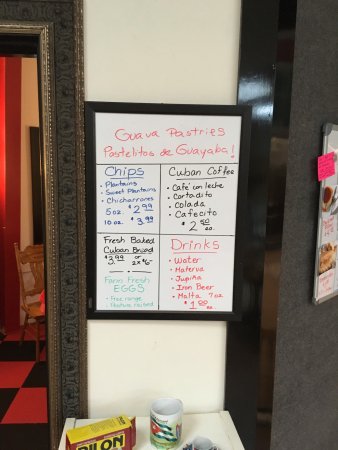 Guava Pastries
Pastelitos de Guayaba!
Chips
• Plantains
• Sweet Plantains
• Chicharrones
5 oz. $2.99
10 oz. $3.99
Cuban Coffee
• Café con leche
• Cortadito
• Colada
• Cafecito
$2.50 ea.
Fresh Baked
Cuban Bread
$3.99 or 2x$6-
Farm Fresh
EGGS
• Free range
• Pasture raised
Drinks
• Water
• Materva
• Jupiña
• Iron Beer
• Malta 7 oz
$1.00 ea.
PILON